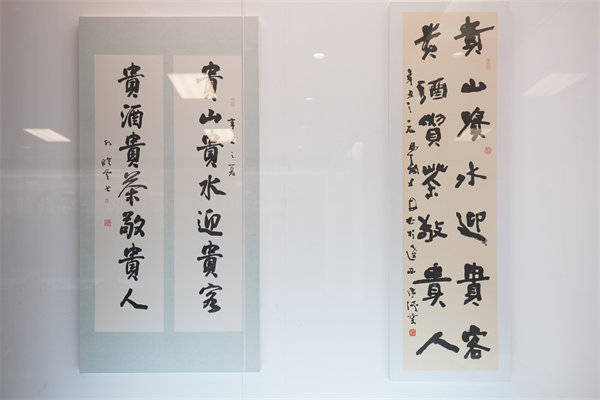 貴山貴水迎貴客
貴酒貴茶敬貴人
貴山貴水迎貴客
貴酒貴茶敬貴人